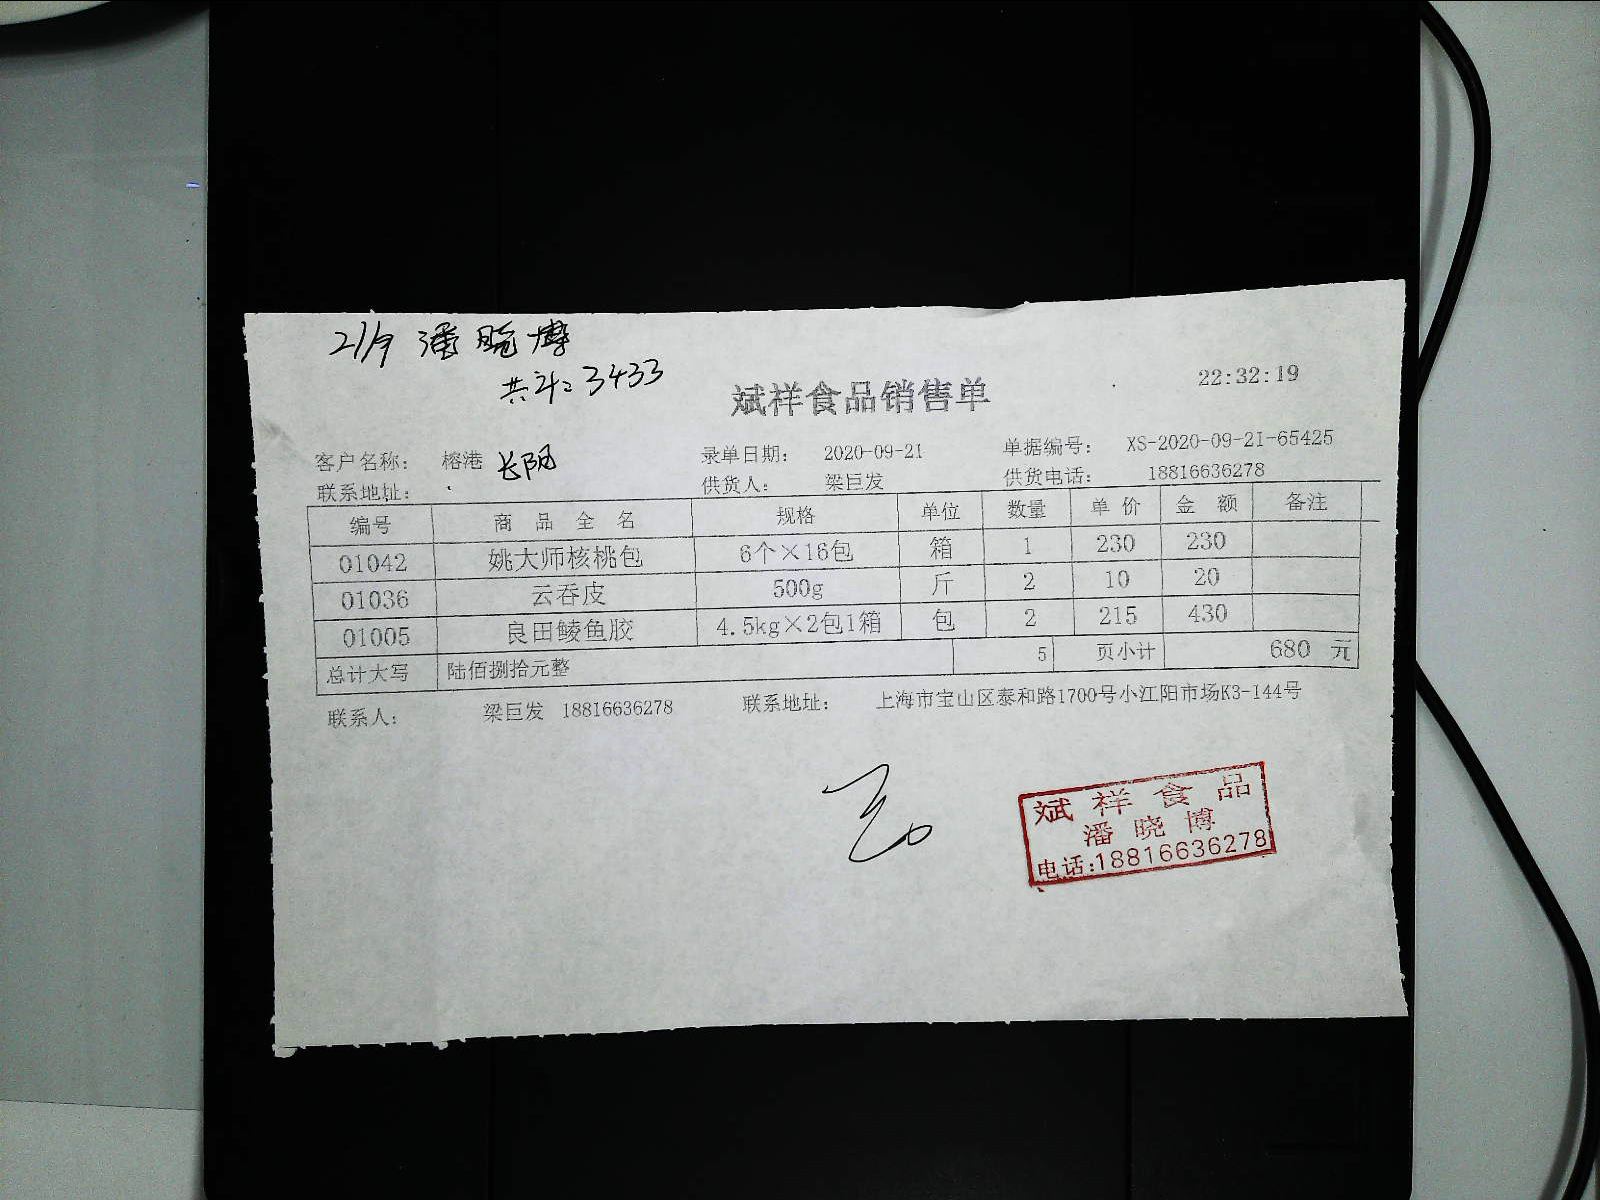 21/9 潘晓博
共计: 3433
斌祥食品销售单 22:32:19
客户名称: 榕港 长阳 录单日期: 2020-09-21 单据编号: XS-2020-09-21-65425
联系地址: 供货人: 梁巨发 供货电话: 18816636278
编号 商品全名 规格 单位 数量 单价 金额 备注
01042 姚大师核桃包 6个×16包 箱 1 230 230
01036 云吞皮 500g 斤 2 10 20
01005 良田鲮鱼胶 4.5kg×2包1箱 包 2 215 430
总计大写 陆佰捌拾元整 5 页小计 680 元
联系人: 梁巨发 18816636278 联系地址: 上海市宝山区泰和路1700号小江阳市场K3-144号
斌祥食品
潘晓博
电话:18816636278